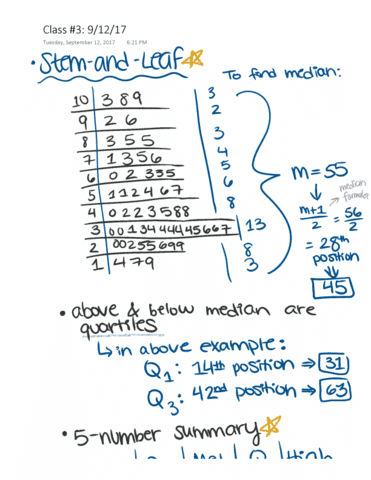 Class #3: 9/12/17
Tuesday, September 12, 2017 6:21 PM
• Stem-and-Leaf
To find median:
10 | 3 8 9 3
9 | 2 6 2
8 | 3 5 5 3
7 | 1 3 5 6 4
6 | 0 2 3 3 5 5
5 | 1 1 2 4 6 7 6
4 | 0 2 2 3 5 8 8 8
3 | 0 0 1 3 4 4 4 4 4 5 6 6 7 13
2 | 0 0 2 5 5 6 9 9 8
1 | 4 7 9 3
m = 55
median formula
m+1/2 = 56/2
= 28th position
45
• above & below median are quartiles
↳ in above example:
Q1: 14th position ⇒ 31
Q3: 42nd position ⇒ 63
• 5-number summary